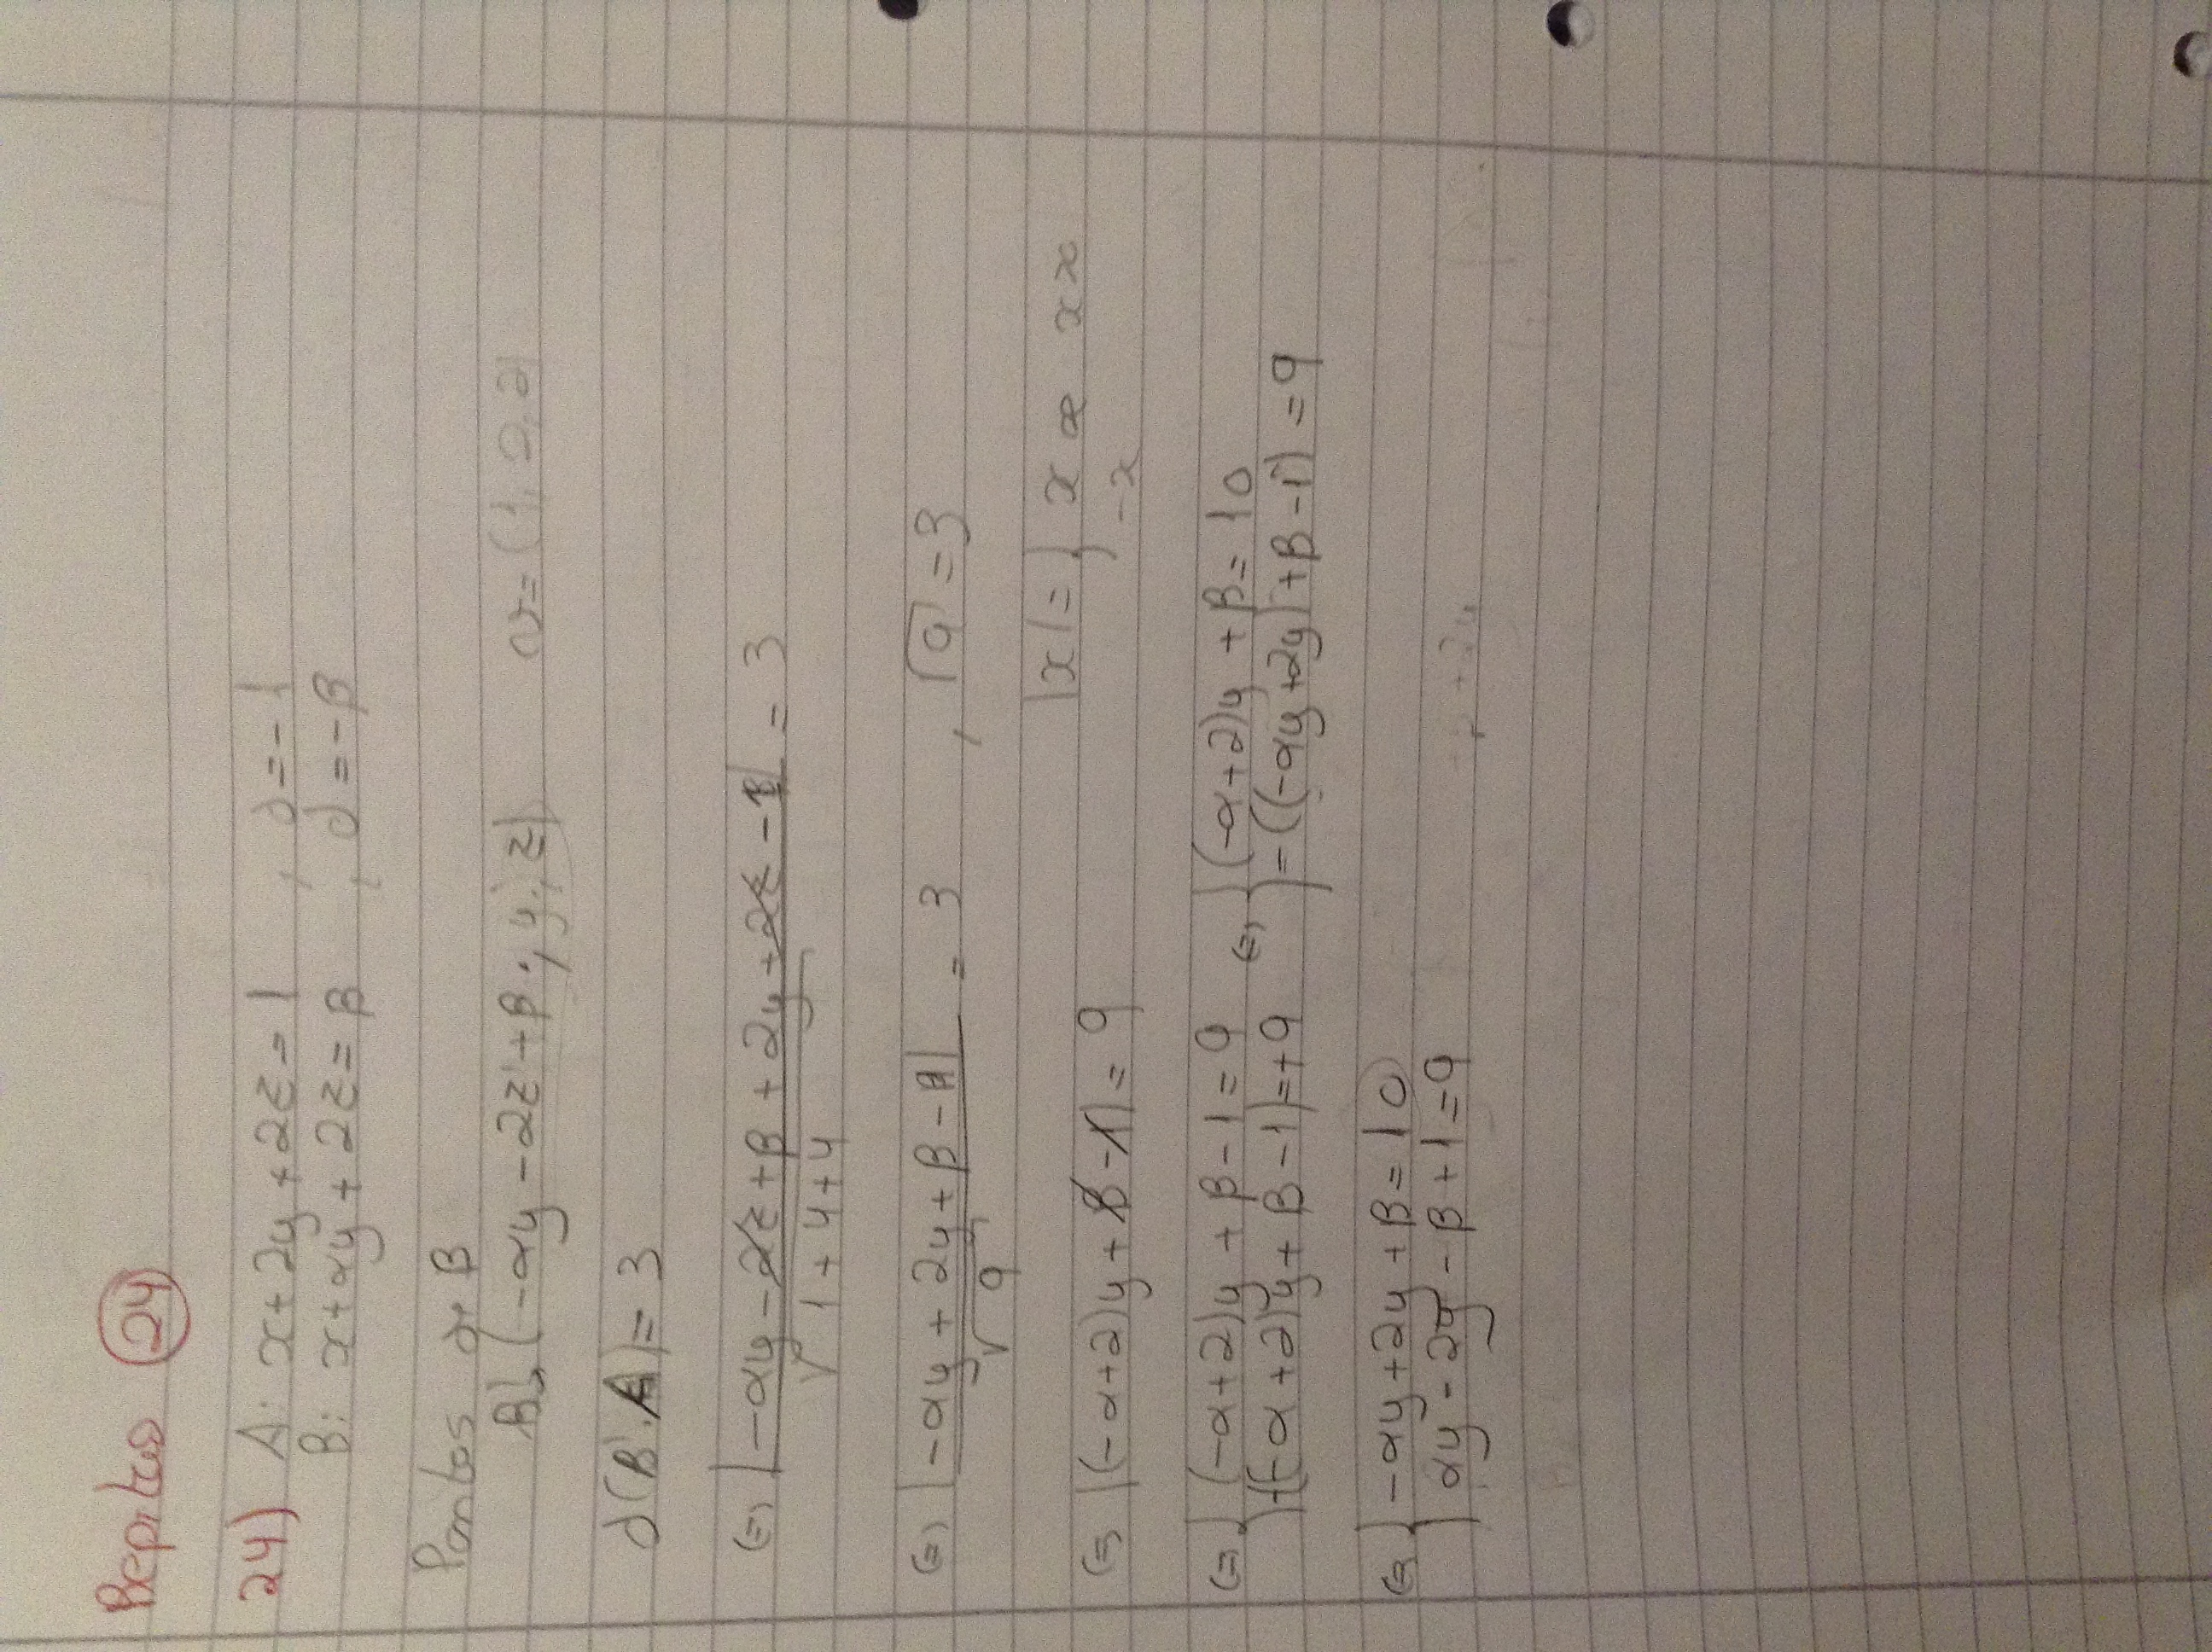 Bepitas 24
24) A: x+2y+2z=1 , d=-1
B: x+αy+2z=β , d=-β
Pontos de B
B'↳(-αy-2z+β; y; z) v=(1,2,2)
d(B'.A)=3
(=) |-αy-2z+β+2y+2z-1| / √1+4+4 = 3
(=) |-αy+2y+β-1| / √9 = 3 , √9=3
|x|={ x
-x
(=) |(-α+2)y+β-1|=9
(=) { (-α+2)y+β-1=9 (=) { (-α+2)y+β=10
-((-α+2)y+β-1)=+9 -((-αy+2y)+β-1)=9
(=) { -αy+2y+β=10
αy-2y-β+1=9